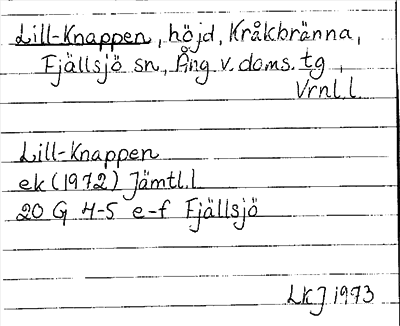 Lill-Knappen, höjd, Kråkbränna,
Fjällsjö sn, Ång v. doms. tg,
Vrnl. l.
Lill-Knappen
ek (1972) Jämtl. l
20 G 4-5 e-f Fjällsjö
LKJ 1973